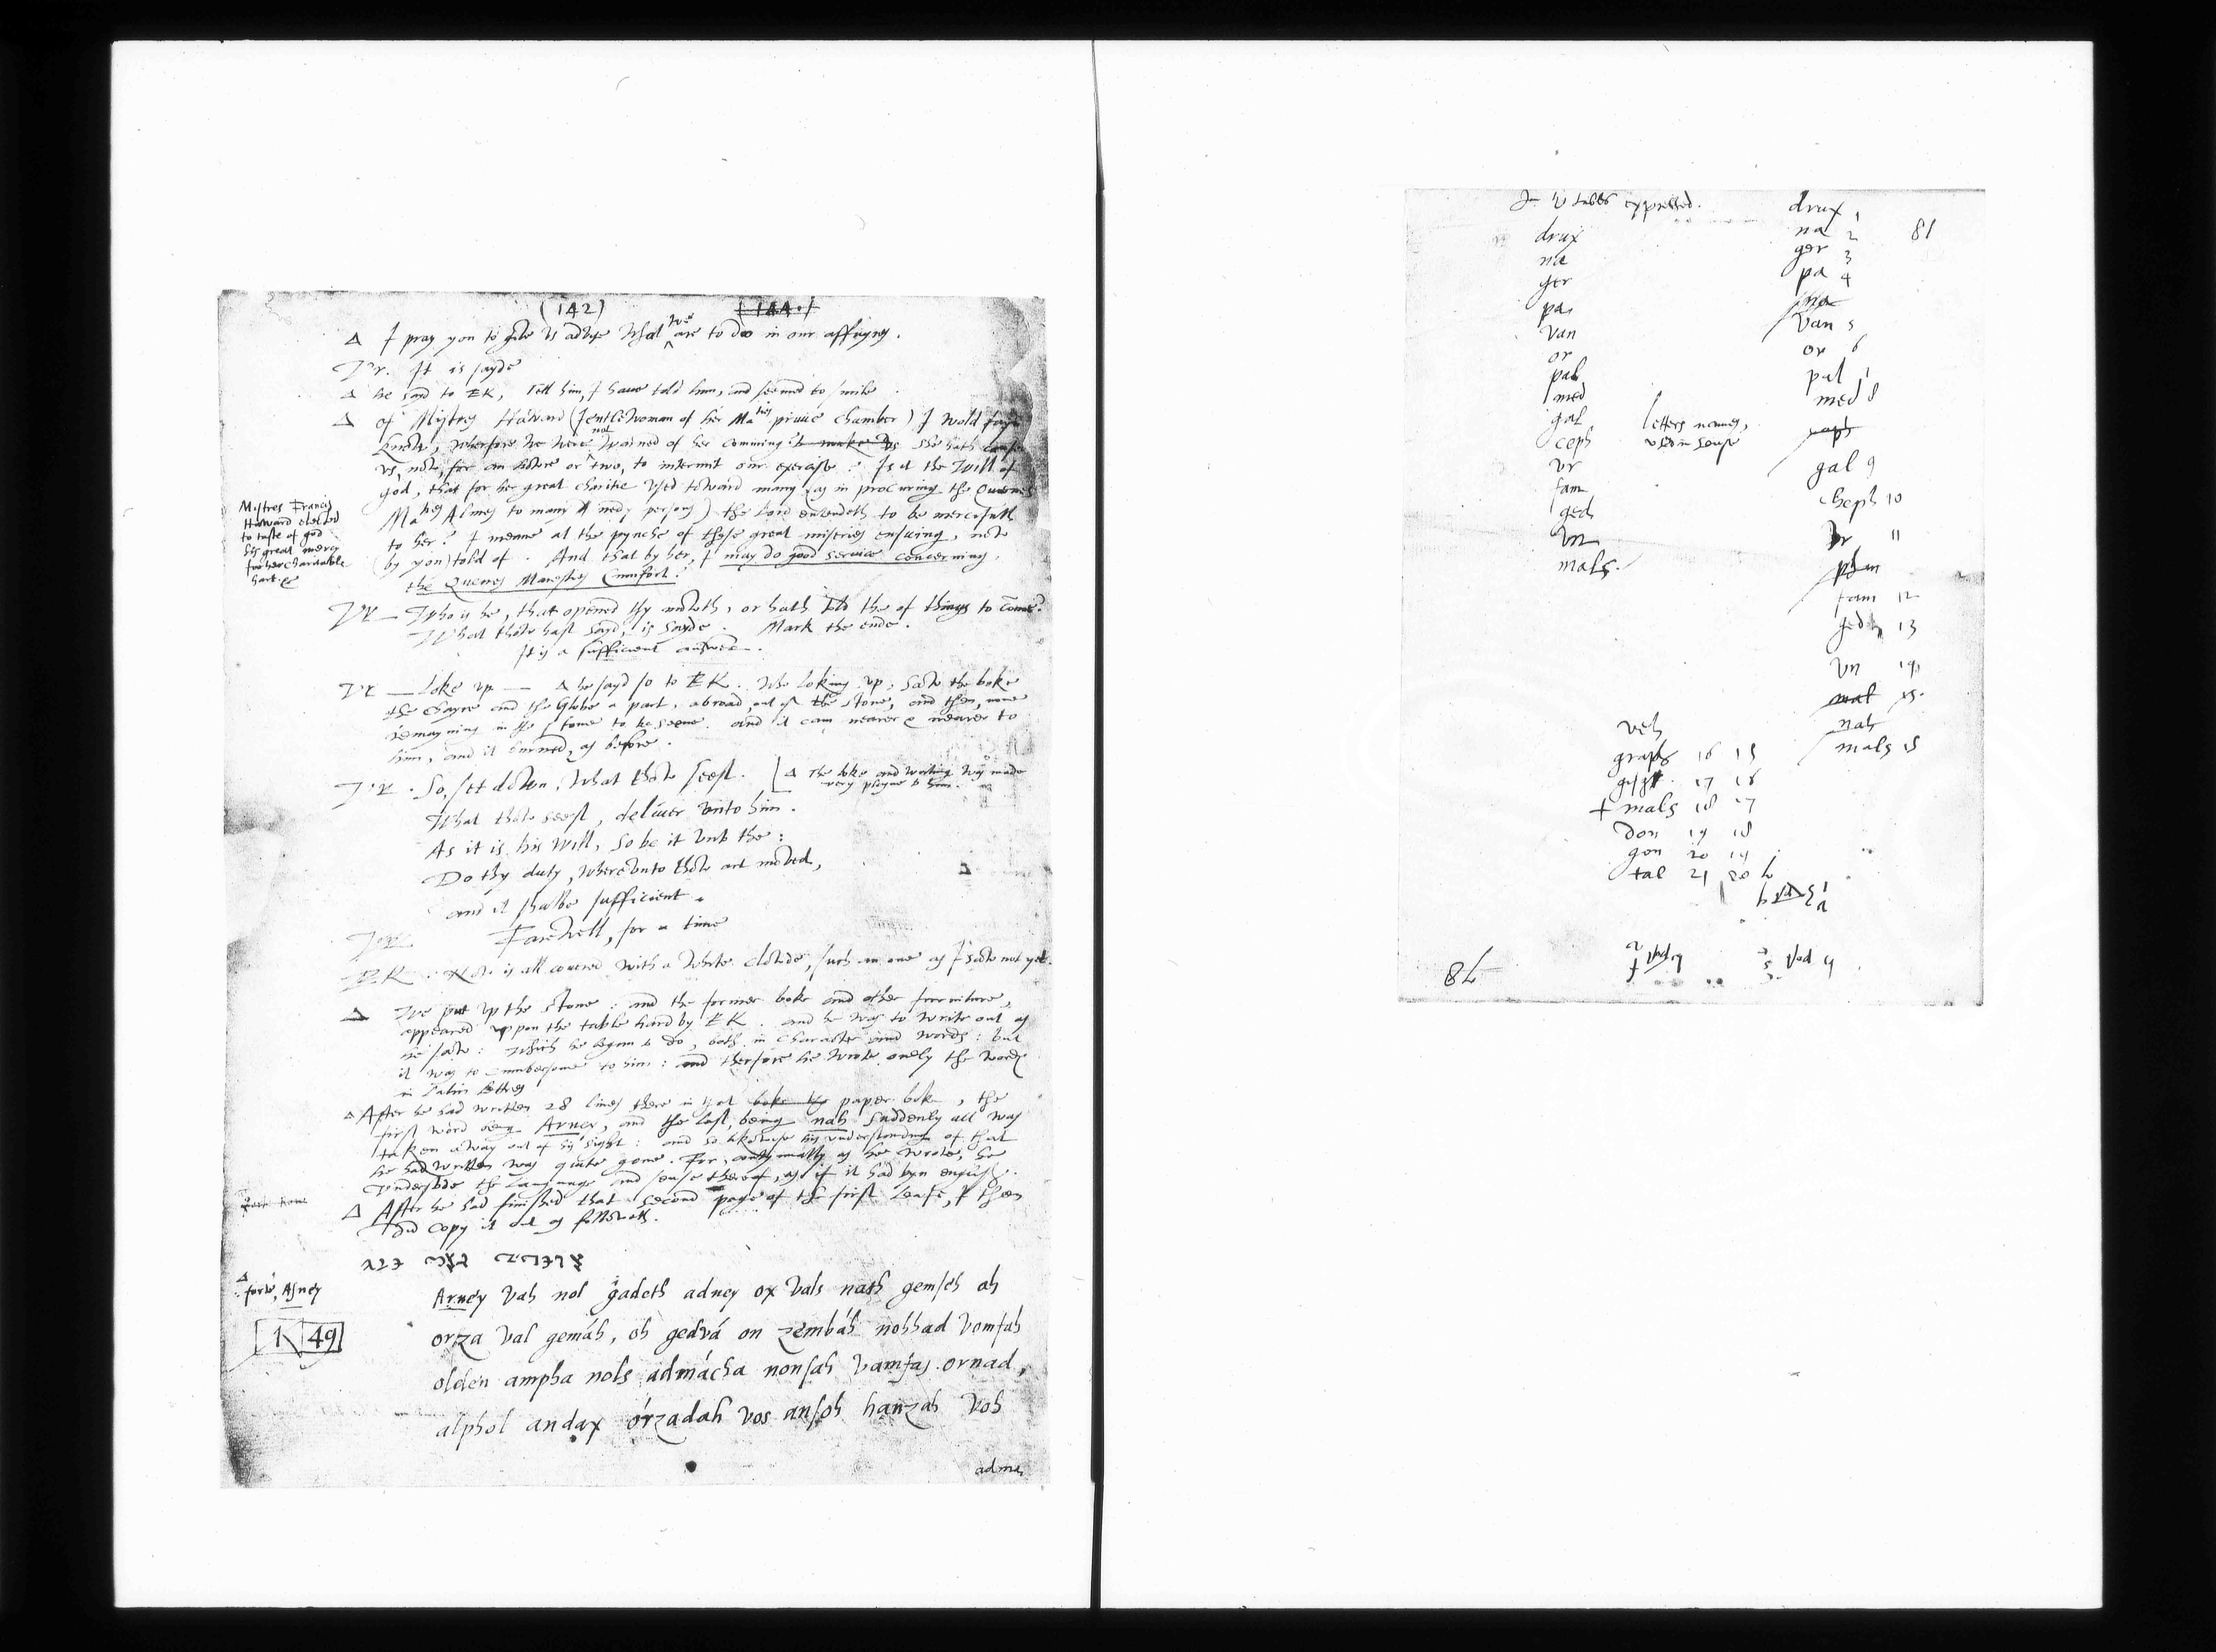 (142) (144.)
Δ I pray you to give us advise what we are to do in our affayres.
Ur. It is sayde
Δ he sayd to EK, Tell him, I have told him, and seemed to smile
Δ of Mystres Haward (Jentlewoman of her Maties privie chamber) I wold fayn
knowe, wherfore we were not warned of her comming she hath
us, now, for an howre or two, to intermit our exercise: Is it the Will of
god, that for her great charitie used toward many (as in procuring the Quenes
Maties Almes to many nedy persons) the Lord entendeth to be mercifull
to her? I meane at the pynche of those great miseries ensuing, now
(by you) told of. And that by her, I may do good service concerning
the Quenes Maiesties Cumfort?
Mystres Francis
Haward elected
to taste of god
his great mercy
for her charitable
hart. &
Ur — Who is he, that opened thy mowth, or hath told the of things to come?
What thow hast sayd, is sayde. Mark the ende.
It is a sufficient answer.
Ur — Loke up — Δ he sayd so to EK. Who loking up, saw the boke
the chayre and the Globe a part, abroad, out of the stone, and then, none
remayning in the stone to be seene. and it cam nearer & nearer to
him, and it burned, as before.
Ur. So, set down, what thow seest. [Δ The boke and writing was made
very playne to him.
What thow seest, deliver unto him.
As it is his Will, so be it unto the:
Do thy duty, whereunto thow art moved,
and it shalbe sufficient.
Ur Farewell, for a time
EK. Now is all covered with a White clowde, such an one as I saw not yet.
Δ We put up the stone: and the former boke and other furniture,
appeared uppon the table hard by EK. and he was to write out as
he saw: Which he began to do, both in Character and words: but
it was to cumbersome to him: and therfore he wrote onely the words
in Latin letters
Δ After he had written 28 lines there in that boke the paper boke, the
first word being Arney, and the last, being nah suddenly all was
taken away out of his sight: and so likewise his understanding of that
he had written was quite gone. For, contynually as he wrote, he
understode the language and sense therof, as if it had byn english.
Δ After he had finished that second page of the first Leafe, I then
did copy it out as followeth.
Δ forte, Asney
1 49
Arney vah nol gadeth adney ox vals nath gemseh ah
orza val gemáh, oh gedvá on zembáh nohhad vomfah
olden ampha nols admácha nonsah vamfas ornad,
alphol andax órzadah vos ansoh hanzah voh
adma
In tables expressed.
81
drux
na
ger
pa
van
or
pal
med
gal
ceph
ur
fam
ged
un
mals.
letters names,
used in sense
drux 1
na 2
ger 3
pa 4
van 5
or 6
pal 7
med 8
ceph
gal 9
cheph 10
ur 11
fam 12
ged 13
un 14
mat 15
nah
mals 15
veh
graph 16 15
17 16
+ mals 18 17
don 19 18
gon 20 19
tal 21 20
84